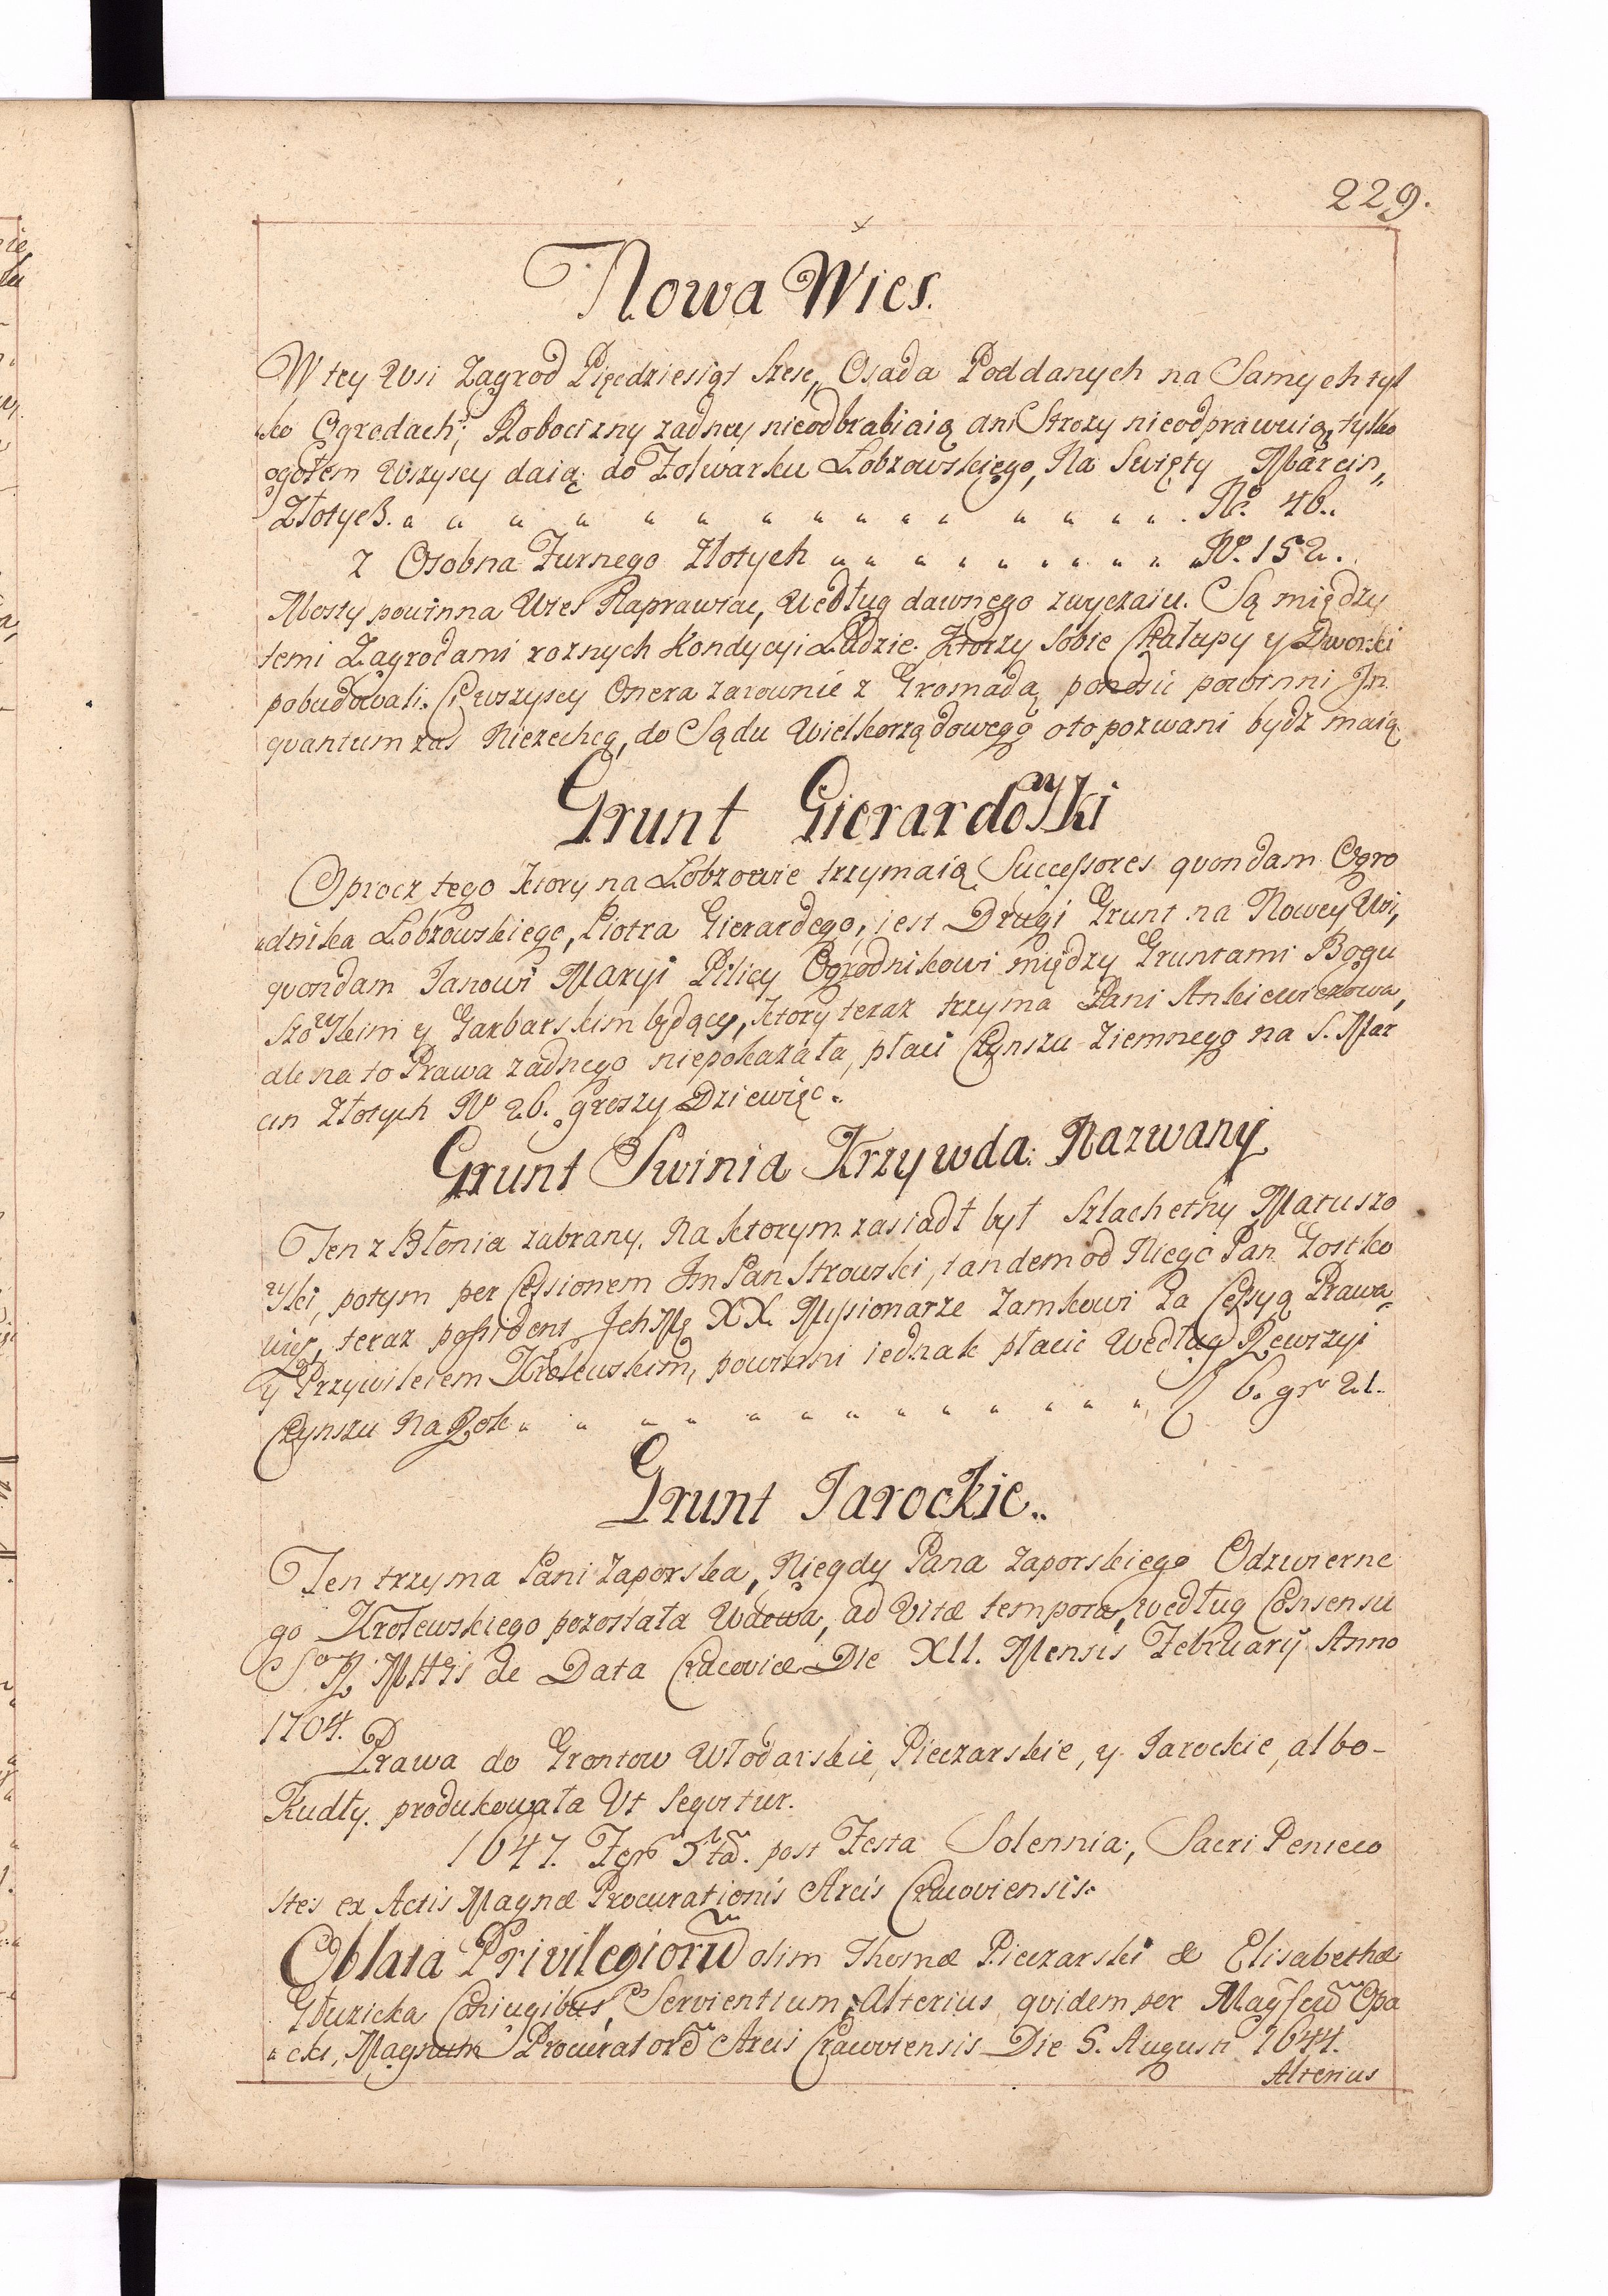 229.
Nowa Wies.
W tey Wsi Zagrod Pięcdziesiąt Szesc, Osada Poddanych na Samych tyl
ko Ogrodach, Robocizny zadney nieodbrabiaią ani Strozy nieodprawuią, tylko
ogołem Wszyscy daią do Folwarku Łobzowskiego, Na Swięty Marcin,
Złotych. " " " " " " " " " " " " " " " " Nº. 46.
Z Osobna Furnego Złotych " " " " " " " " " Nº. 152.
Mosty powinna Wies Naprawiac, Według dawnego zwyczaiu. Są między
temi Zagrodami roznych Kondycyi Ludzie. Ktorzy Sobie Chałupy y Dworki
pobudowali. Ci wszyscy Onera zarownie z Gromadą ponosic powinni In
quantum zas Niezechcą, do Sądu Wielkorządowego oto pozwani bydz maią
Grunt Gierardowski
Oprocz tego ktory na Łobzowie trzymaią Successores quondam Ogro
dnika Łobzowskiego, Piotra Gierardego, iest Drugi Grunt na Nowey Wsi,
quondam Janowi Maryi Pilicy Ogrodnikowi między Gruntami Bogu
szowskim y Garbarskim będący, ktory teraz trzyma Pani Ankiewiczowa,
ale na to Prawa zadnego niepokazała, płaci Czynszu Ziemnego na S. Mar
cin Złotych Nº 26. groszy Dziewięc.
Grunt Swinia Krzywda Nazwany
Ten z Błonia zabrany. Na ktorym zasiadł był Szlachetny Maruszo
wski, potym per Cessionem Im Pan Strowski, tandem od Niego Pan Gostko
wicz, teraz possident Ich Mę XX. Missionarze Zamkowi Za Cessyą Prawa
y Przywileiem Krolewskim, powinni iednak płacic Według Rewizyi
Czynszu Na Rok " " " " " " " " " " " " " f 6. gr 21.
Grunt Jarockie..
Ten trzyma Pani Zaporska, Niegdy Pana Zaporskiego Odzwierne
go Krolewskiego pozostała Wdowa, ad Vitæ tempora, według Consensu
S R Mttis de Data Cracoviæ Die XII. Mensis Februarij Anno
1704.
Prawa do Grontow Włodarskie, Pieczarskie, y Jarockie, albo
Kudły. produkowała Ut Seqvitur.
1647. Feria 5ta. post Festa Solennia, Sacri Penteco
stes ex Actis Magnæ Procurationis Arcis Cracoviensis.
Oblata Privilegiorũ olim Thomæ Pieczarski & Elisabethæ
Głuzicka Coniugibus, Servientium, Alterius quidem per Opa
cki, Magnum Procuratorẽ Arcis Cracoviensis Die 5. Augusti 1644.
Alterius